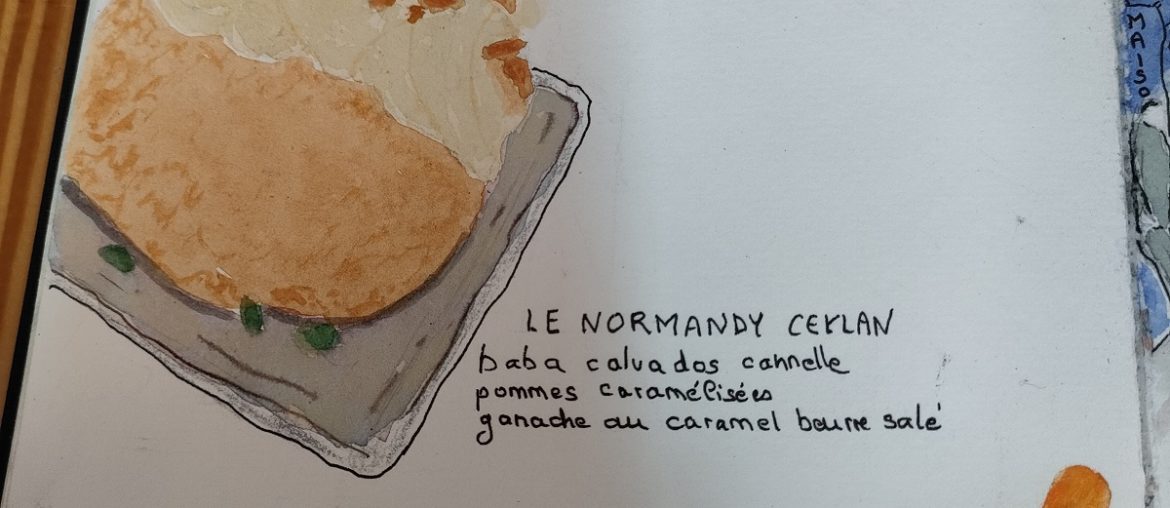 LE NORMANDY CEYLAN
baba calvados cannelle
pommes caramélisées
ganache au caramel beurre salé
MAISO